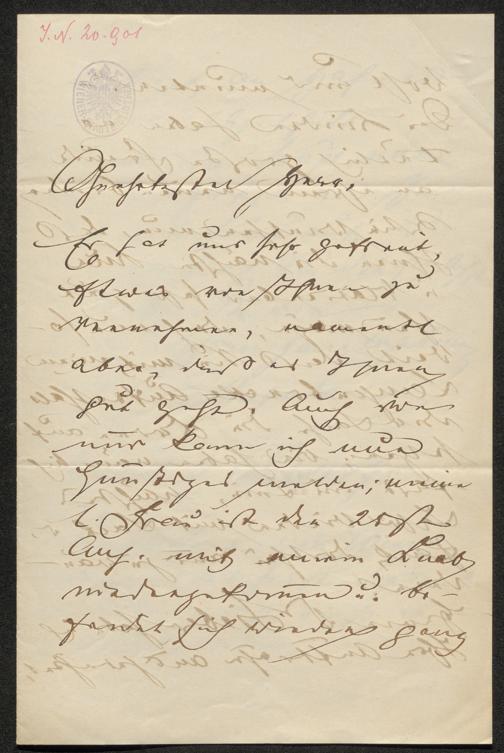 I.N. 20.901
Verehrtester Herr,
Es hat uns sehr gefreut,
Etwas von Ihnen zu
vernehmen, namentl
aber, daß es Ihnen
gut geht. Auch von
uns kann ich nur
Günstiges melden; meine
l. Frau ist den 25st
Aug. mit einem Knab
niedergekommen u. be-
findet sich wieder ganz